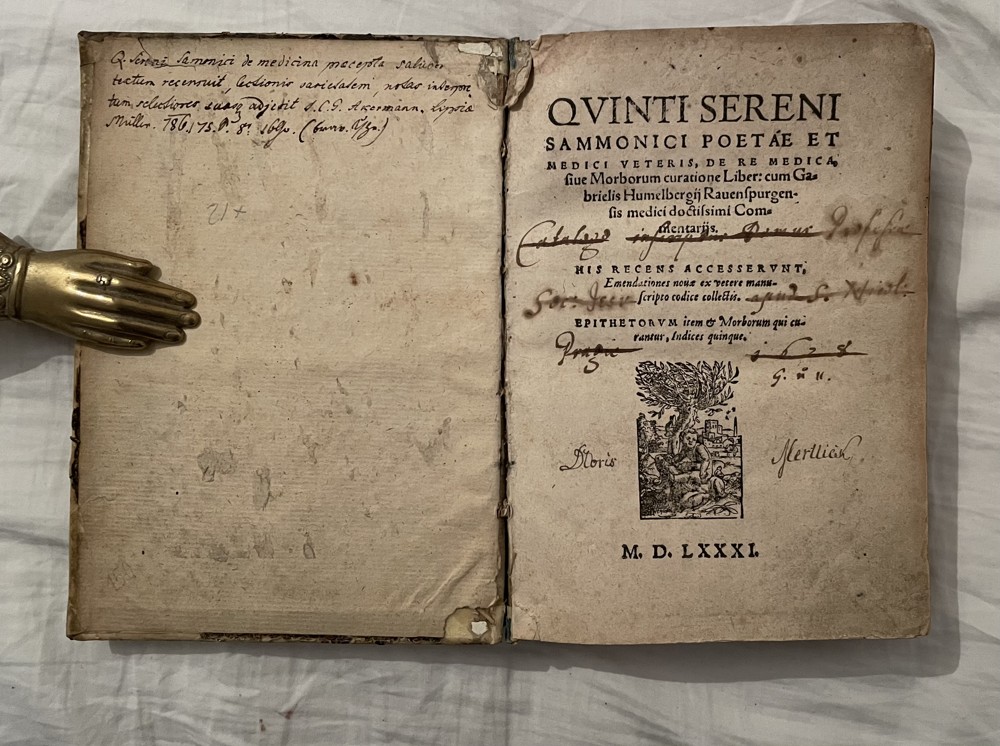 Q. Sereni Samonici de medicina præcepta saluber
textum recensuit, lectionis varietatem, notas interpre
tum selectiores suasq adjecit J. C. G. Akermann. Lipsiæ
Müller. 786. 175. P. 8º
QVINTI SERENI
SAMMONICI POETÆ ET
MEDICI VETERIS, DE RE MEDICA,
ſiue Morborum curatione Liber: cum Ga-
brielis Humelbergij Rauenſpurgen-
ſis medici doctiſsimi Com-
mentarijs.
Catalogo inscriptus Domus Professæ
HIS RECENS ACCESSERVNT,
Emendationes nouæ ex vetere manu-
ſcripto codice collectæ.
Soc. Jesu apud S. Nicol.
EPITHETORVM item & Morborum qui cu-
rantur, Indices quinque.
Pragæ 1628
G. n u.
Merllick
M. D. LXXXI.